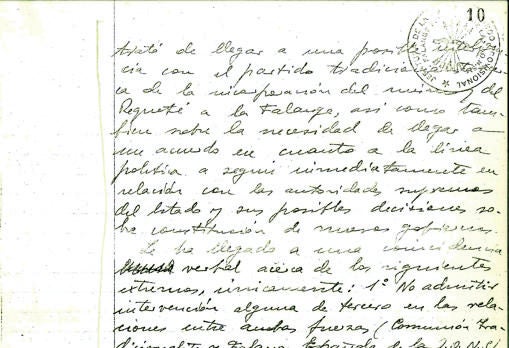 10
trató de llegar a una posible inteligen-
cia con el partido tradicionalista
ca de la incorporación del mismo y del
Requeté a la Falange, así como tam-
bien sobre la necesidad de llegar a
un acuerdo en cuanto a la línea
política a seguir inmediatamente en
relación con las autoridades supremas
del Estado y sus posibles decisiones so-
bre constitución de nuevos gobiernos.
Se ha llegado a una coincidencia
verbal acerca de los siguientes
extremos, únicamente: 1º No admitir
intervención alguna de tercero en las rela-
ciones entre ambas fuerzas (Comunión Tra-
dicionalista y Falange Española de la J.O.N.S.